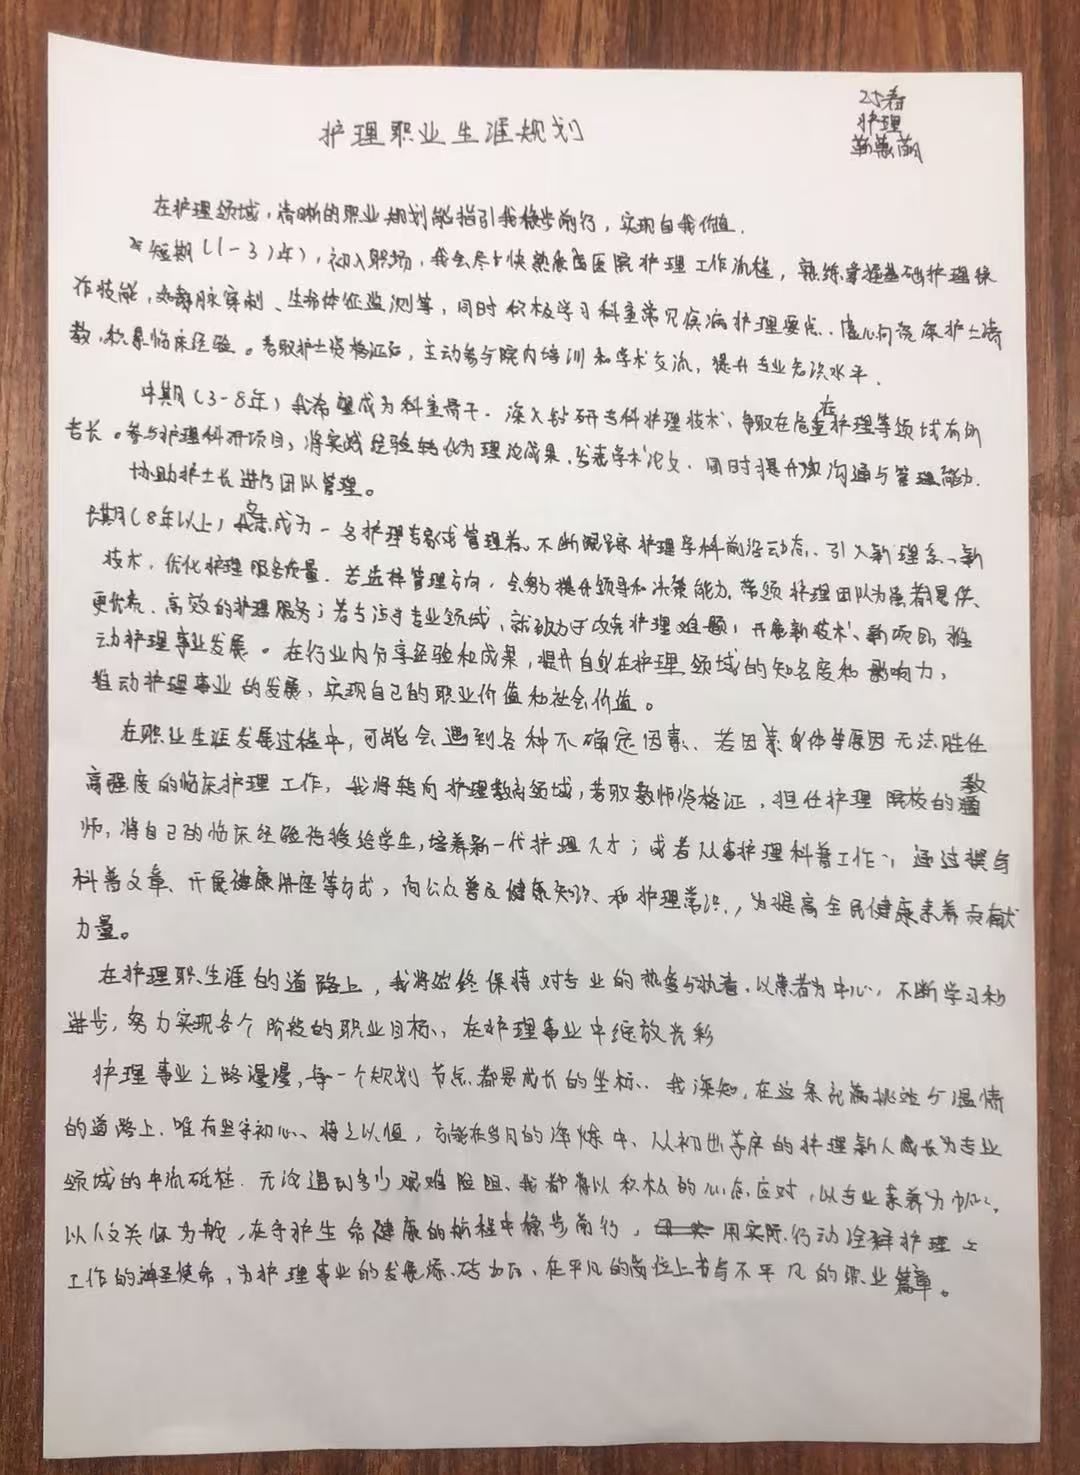 25春
护理
护理职业生涯规划
在护理领域，清晰的职业规划能指引我稳步前行，实现自我价值.
短期（1-3）年），初入职场，我会尽快熟悉医院护理工作流程，熟练掌握基础护理操
作技能，如静脉穿刺、生命体征监测等，同时积极学习科室常见疾病护理要点.虚心向资深护士请
教，积累临床经验。考取护士资格证后，主动参与院内培训和学术交流，提升专业知识水平.
中期（3-8年）我希望成为科室骨干.深入钻研专科护理技术，争取在危重护理等领域有所
专长。参与护理科研项目，将实践经验转化为理论成果，发表学术论文.同时提升沟通与管理能力.
协助护士长进行团队管理。
长期（8年以上）成为一名护理专家或管理者。不断跟踪护理学科前沿动态、引入新理念、新
技术，优化护理服务质量.若选择管理方向，会努力提升领导和决策能力，带领护理团队为患者提供
更优质、高效的护理服务；若专注于专业领域，就致力于攻克护理难题，开展新技术、新项目，推
动护理事业发展。在行业内分享经验和成果，提升自身在护理领域的知名度和影响力，
推动护理事业的发展，实现自己的职业价值和社会价值。
在职业生涯发展过程中，可能会遇到各种不确定因素、若因身体等原因无法胜任
高强度的临床护理工作，我将转向护理教育领域，考取教师资格证，担任护理院校的教
师，将自己的临床经验传授给学生，培养新一代护理人才；或者从事护理科普工作，通过撰写
科普文章、开展健康讲座等方式，向公众普及健康知识、和护理常识，为提高全民健康素养贡献
力量。
在护理职生涯的道路上，我将始终保持对专业的热爱与执着，以患者为中心，不断学习和
进步，努力实现各个阶段的职业目标，在护理事业中绽放光彩
护理事业之路漫漫，每一个规划节点都是成长的坐标.我深知，在这条充满挑战与温情
的道路上，唯有坚守初心、持之以恒，方能在岁月的淬炼中，从初出茅庐的护理新人成长为专业
领域的中流砥柱.无论遇到多少艰难险阻、我都将以积极的心态应对，以专业素养为帆，
以人文关怀为舵，在守护生命健康的航程中稳步前行，用实际行动诠释护理
工作的神圣使命，为护理事业的发展添砖加瓦，在平凡的岗位上书写不平凡的职业篇章。